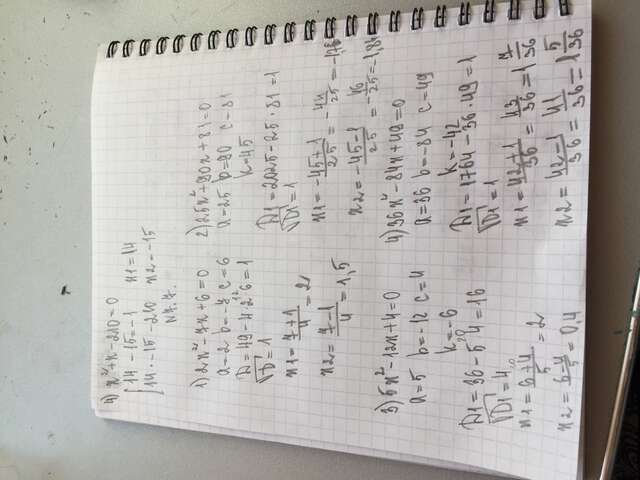 4) x²+x-210=0
14-15=-1 x1=14
14·-15-210 x2=-15
N 7.7.
1) 2x²-7x+6=0
a=2 b=-7 c=6
D=49-4·2·6=1
√D=1
x1=7+1/4=2
x2=7-1/4=1,5
2) 25x²+90x+81=0
a=25 b=90 c=81
k=45
D1=2025-25·81=1
√D1=1
x1=-45+1/25=-44/25=-1,76
x2=-45-1/25=-46/25=-1,84
3) 5x²-12x+4=0
a=5 b=-12 c=4
k=-6
D1=36-5·4=16
√D1=4
x1=6+4/5=2
x2=6-4/5=0,4
4) 36x²-84x+49=0
a=36 b=-84 c=49
k=-42
D1=1764-36·49=1
√D1=1
x1=42+1/36=43/36=1 7/36
x2=42-1/36=41/36=1 5/36